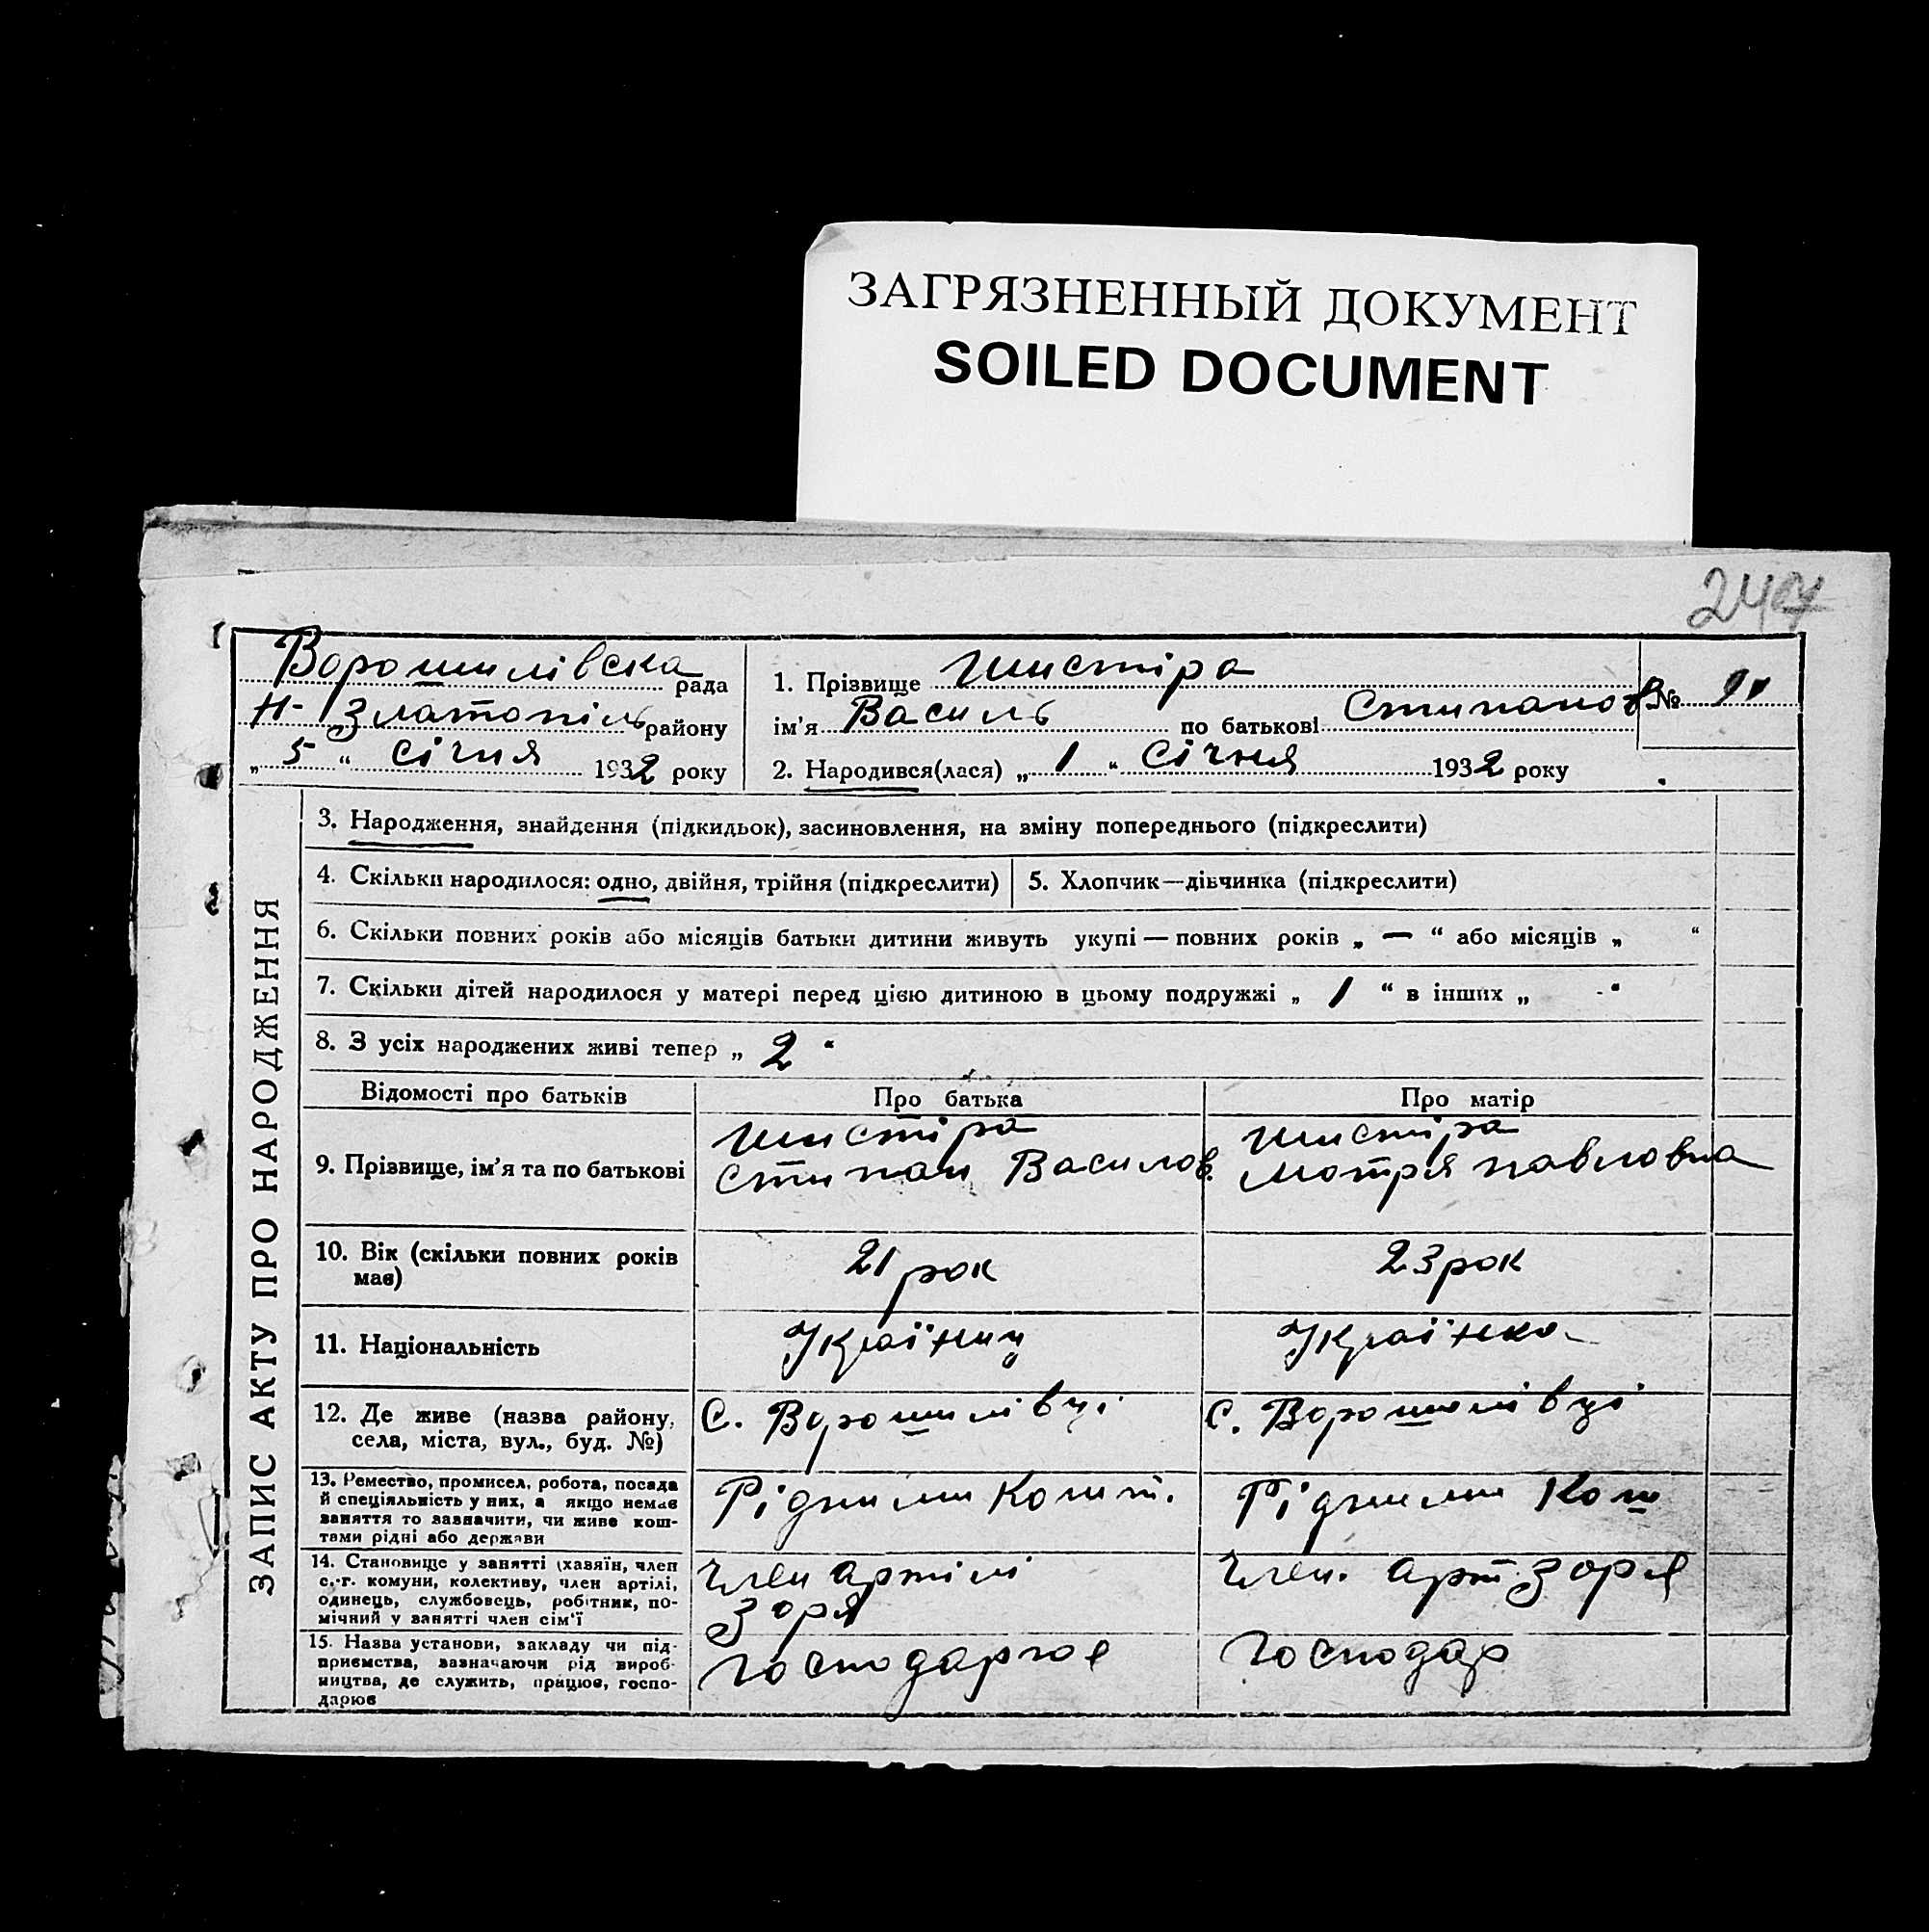 ЗАГРЯЗНЕННЫЙ ДОКУМЕНТ
SOILED DOCUMENT
Ворошилівска рада
Н-Златопіль району
„ 5 “ січня 1932 року
1. Прізвище Шистіра
ім'я Василь по батькові Стипанов
№
2. Народився(лася) „ 1 “ Січня 1932 року
ЗАПИС АКТУ ПРО НАРОДЖЕННЯ
3. Народження, знайдення (підкидьок), засиновлення, на зміну попереднього (підкреслити)
4. Скільки народилося: одно, двійня, трійня (підкреслити)
5. Хлопчик—дівчинка (підкреслити)
6. Скільки повних років або місяців батьки дитини живуть укупі — повних років „ — “ або місяців „ “
7. Скільки дітей народилося у матері перед цією дитиною в цьому подружжі „ 1 “ в інших „ - “
8. З усіх народжених живі тепер „ 2 “
Відомості про батьків
Про батька
Про матір
9. Прізвище, ім'я та по батькові
Шистіра
Стипан Василов.
Шистіра
Мотря павловна
10. Вік (скільки повних років
має)
21 рок
23 рок
11. Національність
Україниц
Українка
12. Де живе (назва району,
села, міста, вул., буд. №)
С. Ворошилівці
С. Ворошилівці
13. Ремество, промисел, робота, посада
й спеціяльність у них, а якщо немає
заняття то зазначити, чи живе кош-
тами рідні або держави
Рідними Кошт.
Рідними Кош
14. Становище у занятті (хазяїн, член
с.-г. комуни, колективу, член артілі,
одинець, службовець, робітник, по-
мічний у занятті член сім'ї
член артілі
Зоря
член. арт. Зоря
15. Назва установи, закладу чи під-
приємства, зазначаючи рід вироб-
ництва, де служить, працює, госпо-
дарює
господарює
господар